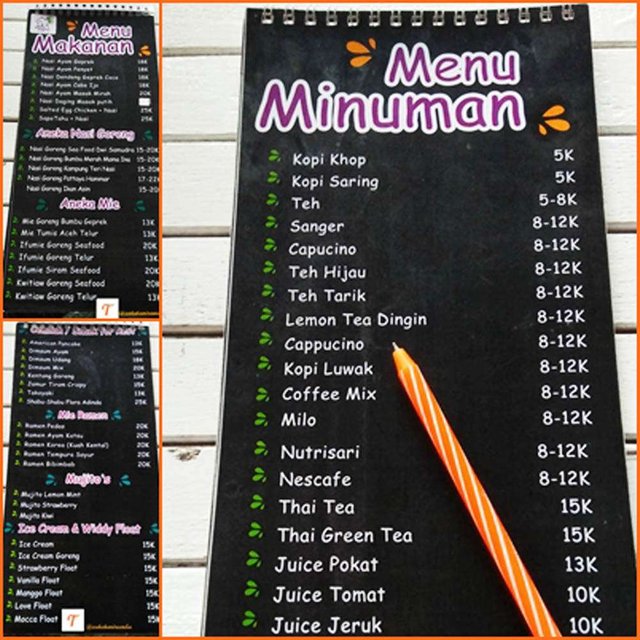 Menu
Makanan
Nasi Ayam Geprek 18K
Nasi Ayam Penyet 18K
Nasi Dendeng Geprek Coco 18K
Nasi Ayam Cabe Ijo 18K
Nasi Ayam Masak Merah 20K
Nasi Daging Masak putih
Salted Egg Chicken + Nasi 25K
Sapo Tahu + Nasi 25K
Aneka Nasi Goreng
Nasi Goreng Sea Food Dwi Samudra 15-20K
Nasi Goreng Bumbu Merah Mama Ina 15-20K
Nasi Goreng Kampung Teri Nasi 15-20K
Nasi Goreng Pattaya Hammar 17-22K
Nasi Goreng Ikan Asin 15-20
Aneka Mie
Mie Goreng Bumbu Geprek 13K
Mie Tumis Aceh Telur 13K
Ifumie Goreng Seafood 20K
Ifumie Goreng Telur 13K
Ifumie Siram Seafood 20K
Kwitiaw Goreng Seafood 20K
Kwitiaw Goreng Telur 13
T
American Pancake 13K
Dimsum Ayam 15K
Dimsum Udang 18K
Dimsum Mix 20K
Kentang Goreng 13K
Jamur Tiram Crispy 15K
Takoyaki 13K
Shabu-Shabu Flora Adinda 25K
Mie Ramen
Ramen Pedas 20K
Ramen Ayam Katsu 20K
Ramen Korea (Kuah Kental) 20K
Ramen Tempura Sayur 20K
Ramen Bibimbab 20K
Mujito's
Mujito Lemon Mint
Mujito Strawberry
Mujito Kiwi
Ice Cream & Widdy Float
Ice Cream 15K
Ice Cream Goreng 15K
Strawberry Float 15K
Vanilla Float 15K
Manggo Float 15K
Love Float 15K
Mocca Float 15K
T
Menu
Minuman
Kopi Khop 5K
Kopi Saring 5K
Teh 5-8K
Sanger 8-12K
Capucino 8-12K
Teh Hijau 8-12K
Teh Tarik 8-12K
Lemon Tea Dingin 8-12K
Cappucino 8-12K
Kopi Luwak 8-12K
Coffee Mix 8-12K
Milo 8-12K
Nutrisari 8-12K
Nescafe 8-12K
Thai Tea 15K
Thai Green Tea 15K
Juice Pokat 13K
Juice Tomat 10K
Juice Jeruk 10K